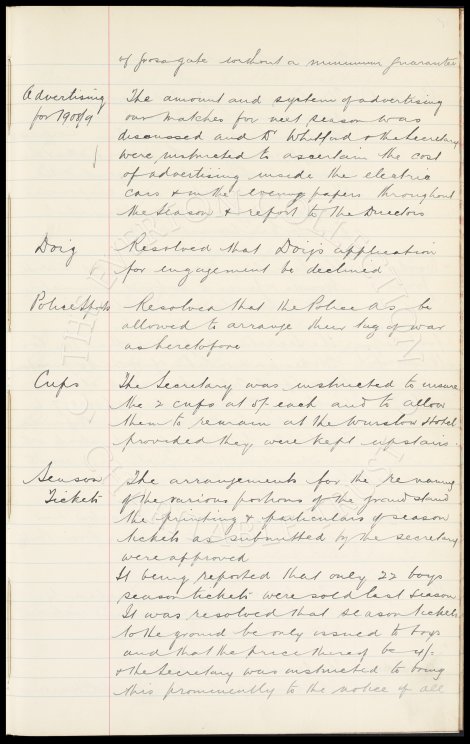 of gross gate without a minimum guarantee
Advertising for 1908/9
The amount and system of advertising
our matches for next season was
discussed and Dr Whitford & the Secretary
were instructed to ascertain the cost
of advertising inside the electric
cars & in the evening papers throughout
the Season & report to the Directors
Doig
Resolved that Doig's application
for engagement be declined
Police Sports
Resolved that the Police As. be
allowed to arrange their tug of war
as heretofore
Cups
The Secretary was instructed to insure
the 2 cups at each and to allow
them to remain at the Winslow Hotel
provided they were kept upstairs.
Season Tickets
The arrangements for the
of the various portions of the ground stand
the printing & particulars of season
tickets as submitted by the secretary
were approved
It being reported that only 22 boys
season tickets were sold last season
It was resolved that season tickets
to the ground be only issued to boys
and that the price thereof be
& the Secretary was instructed to bring
this prominently to the notice of all